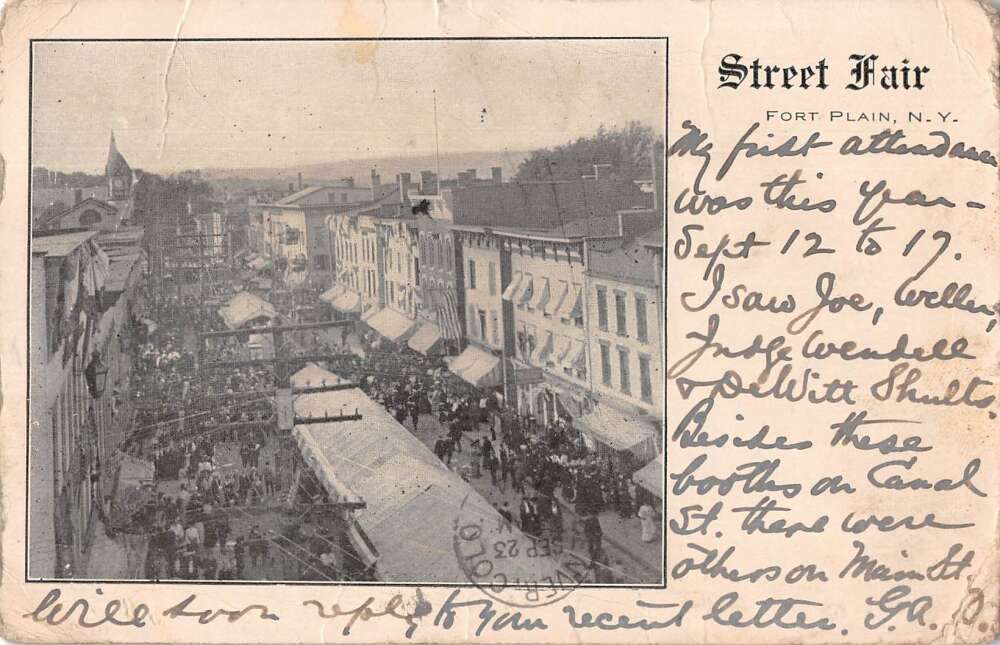 Street Fair
FORT PLAIN, N. Y.
My first attendance
was this year –
Sept 12 to 17.
I saw Joe,
Judge Wendell
& DeWitt Shults.
Besides these
booths on Canal
St. there were
others on Main St.
Will soon reply to your recent letter. G.A.
SEP 23
DENVER COLO